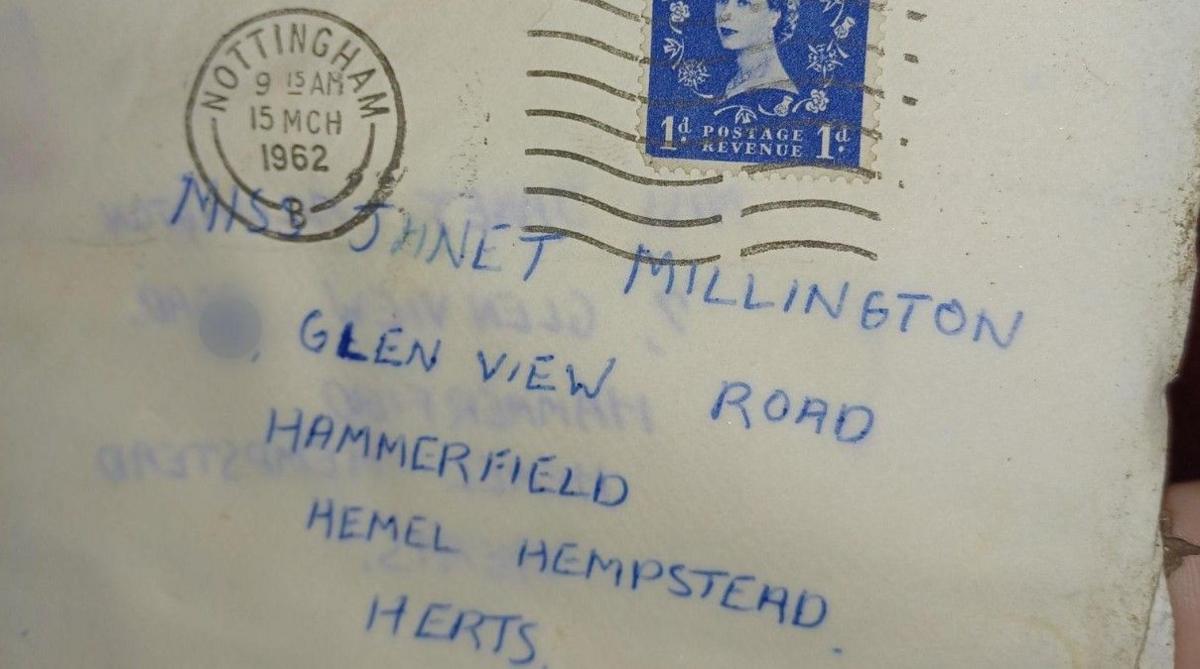 NOTTINGHAM
9 15 AM
15 MCH
1962
B
1d POSTAGE REVENUE 1d.
MISS JANET MILLINGTON
, GLEN VIEW ROAD
HAMMERFIELD
HEMEL HEMPSTEAD.
HERTS.